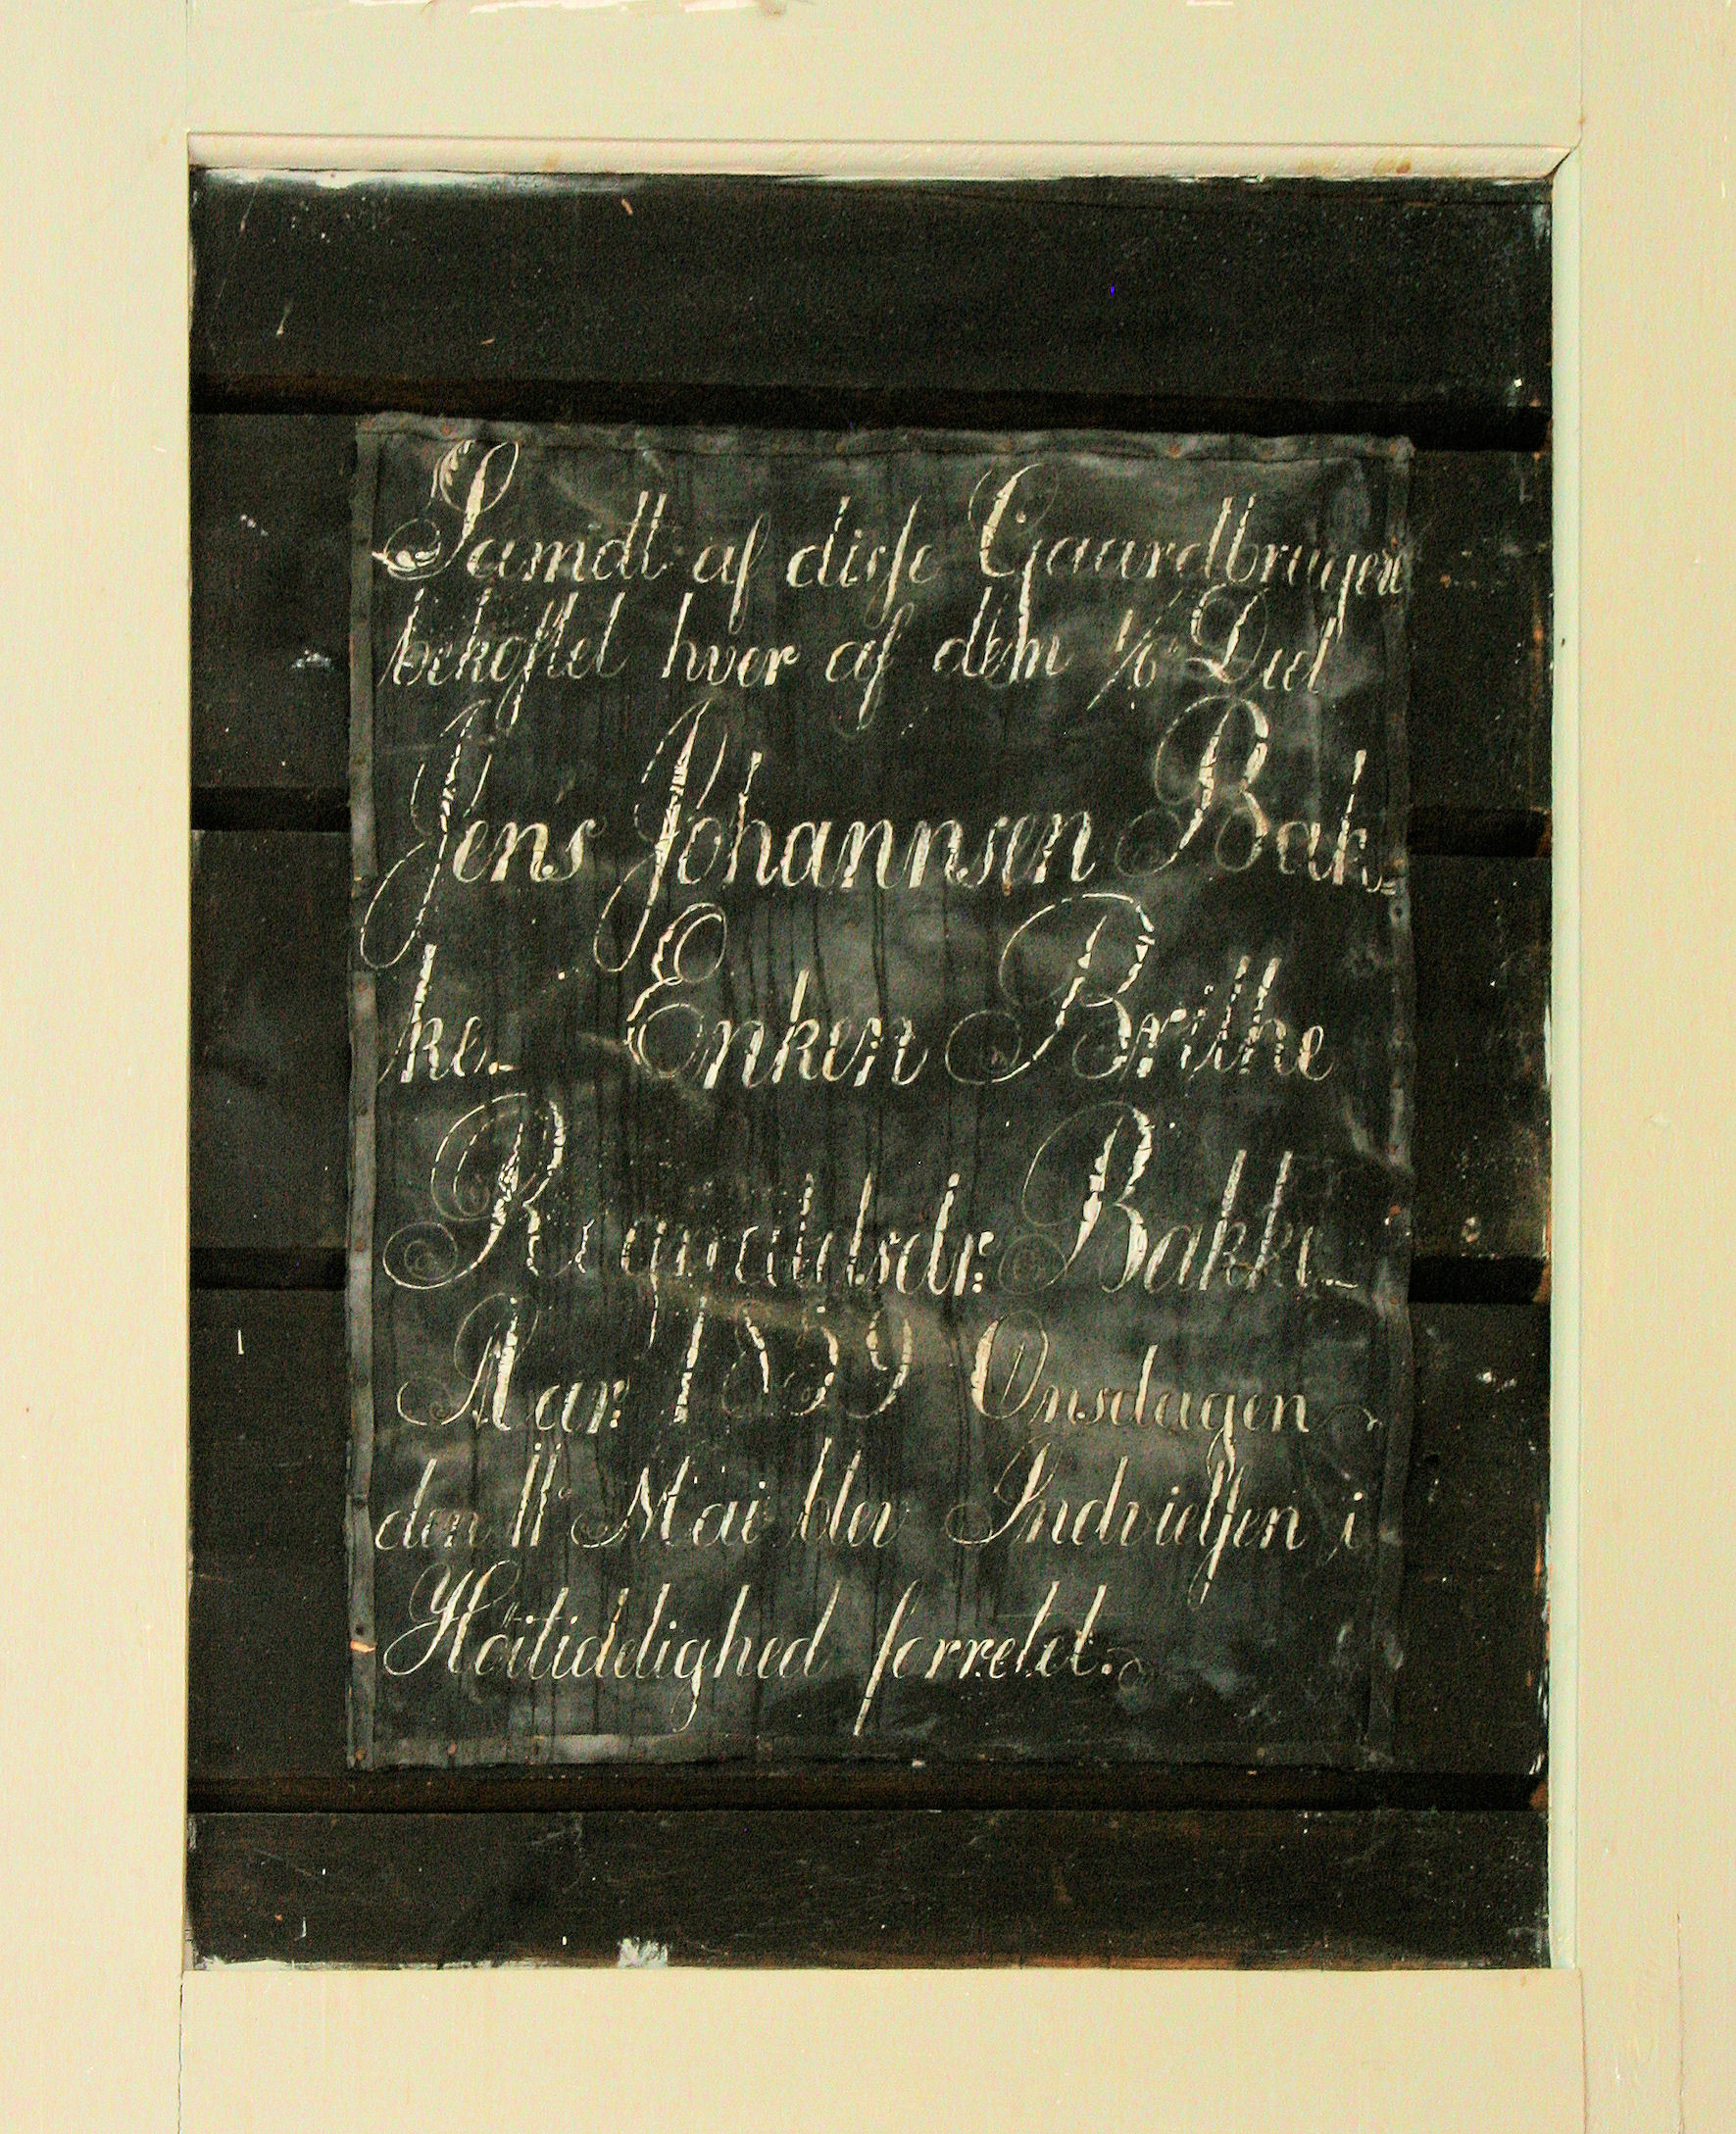 Samdt af disse Gaardbrugere
bekostet hver af dem 1/6 Deel
Jens Johannsen Bak-
ke. Enken Brithe
Ragnaldsdr: Bakke_
Aar: 1859 Onsdagen
den 11te Mai blev Indvielsen i
Høitidelighed forrettet.